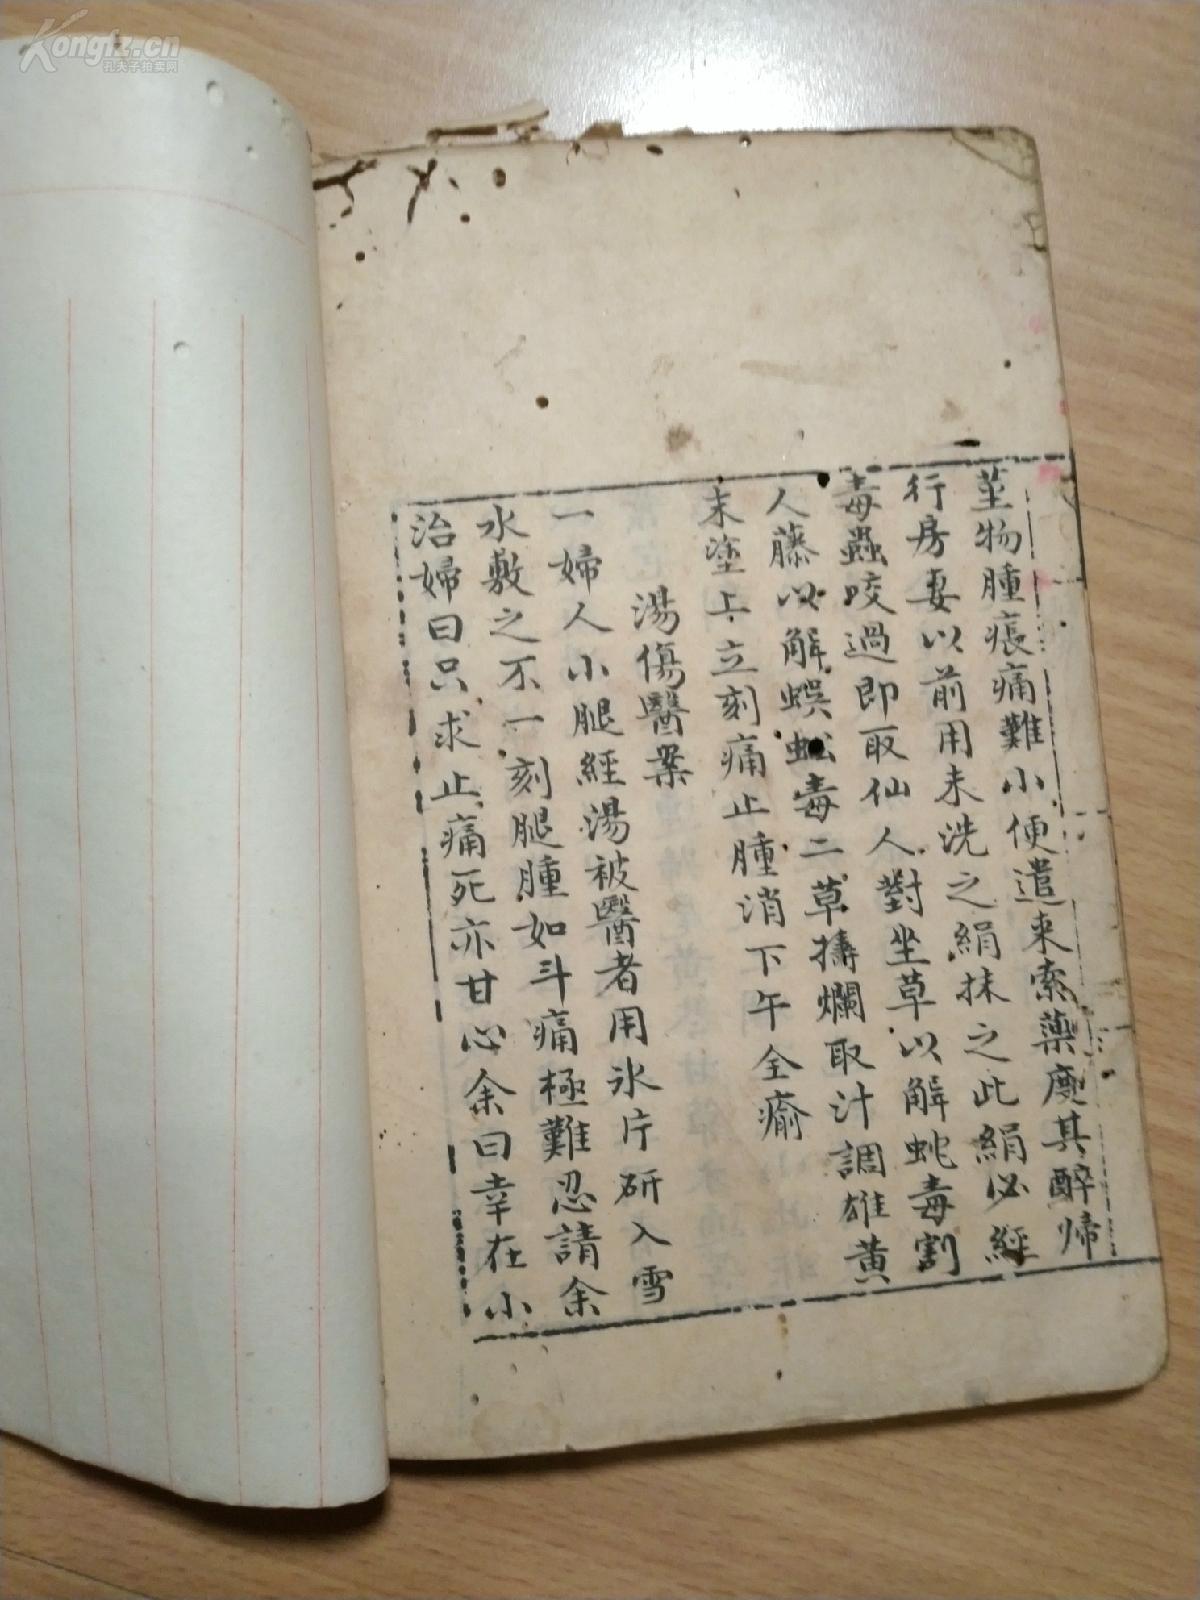 Kongfz.cn
孔夫子拍卖网
莖物腫痕痛難小便遣來索藥度其醉帰
行房妻以前用未洗之絹抹之此絹必經
毒蟲咬過即取仙人對坐草以解蛇毒割
人藤以解蜈蚣毒二草擣爛取汁調雄黃
末塗上立刻痛止腫消下午全瘉
湯傷醫案
一婦人小腿經湯被醫者用氷片研入雪
水敷之不一刻腿腫如斗痛極難忍請余
治婦曰只求止痛死亦甘心余曰幸在小